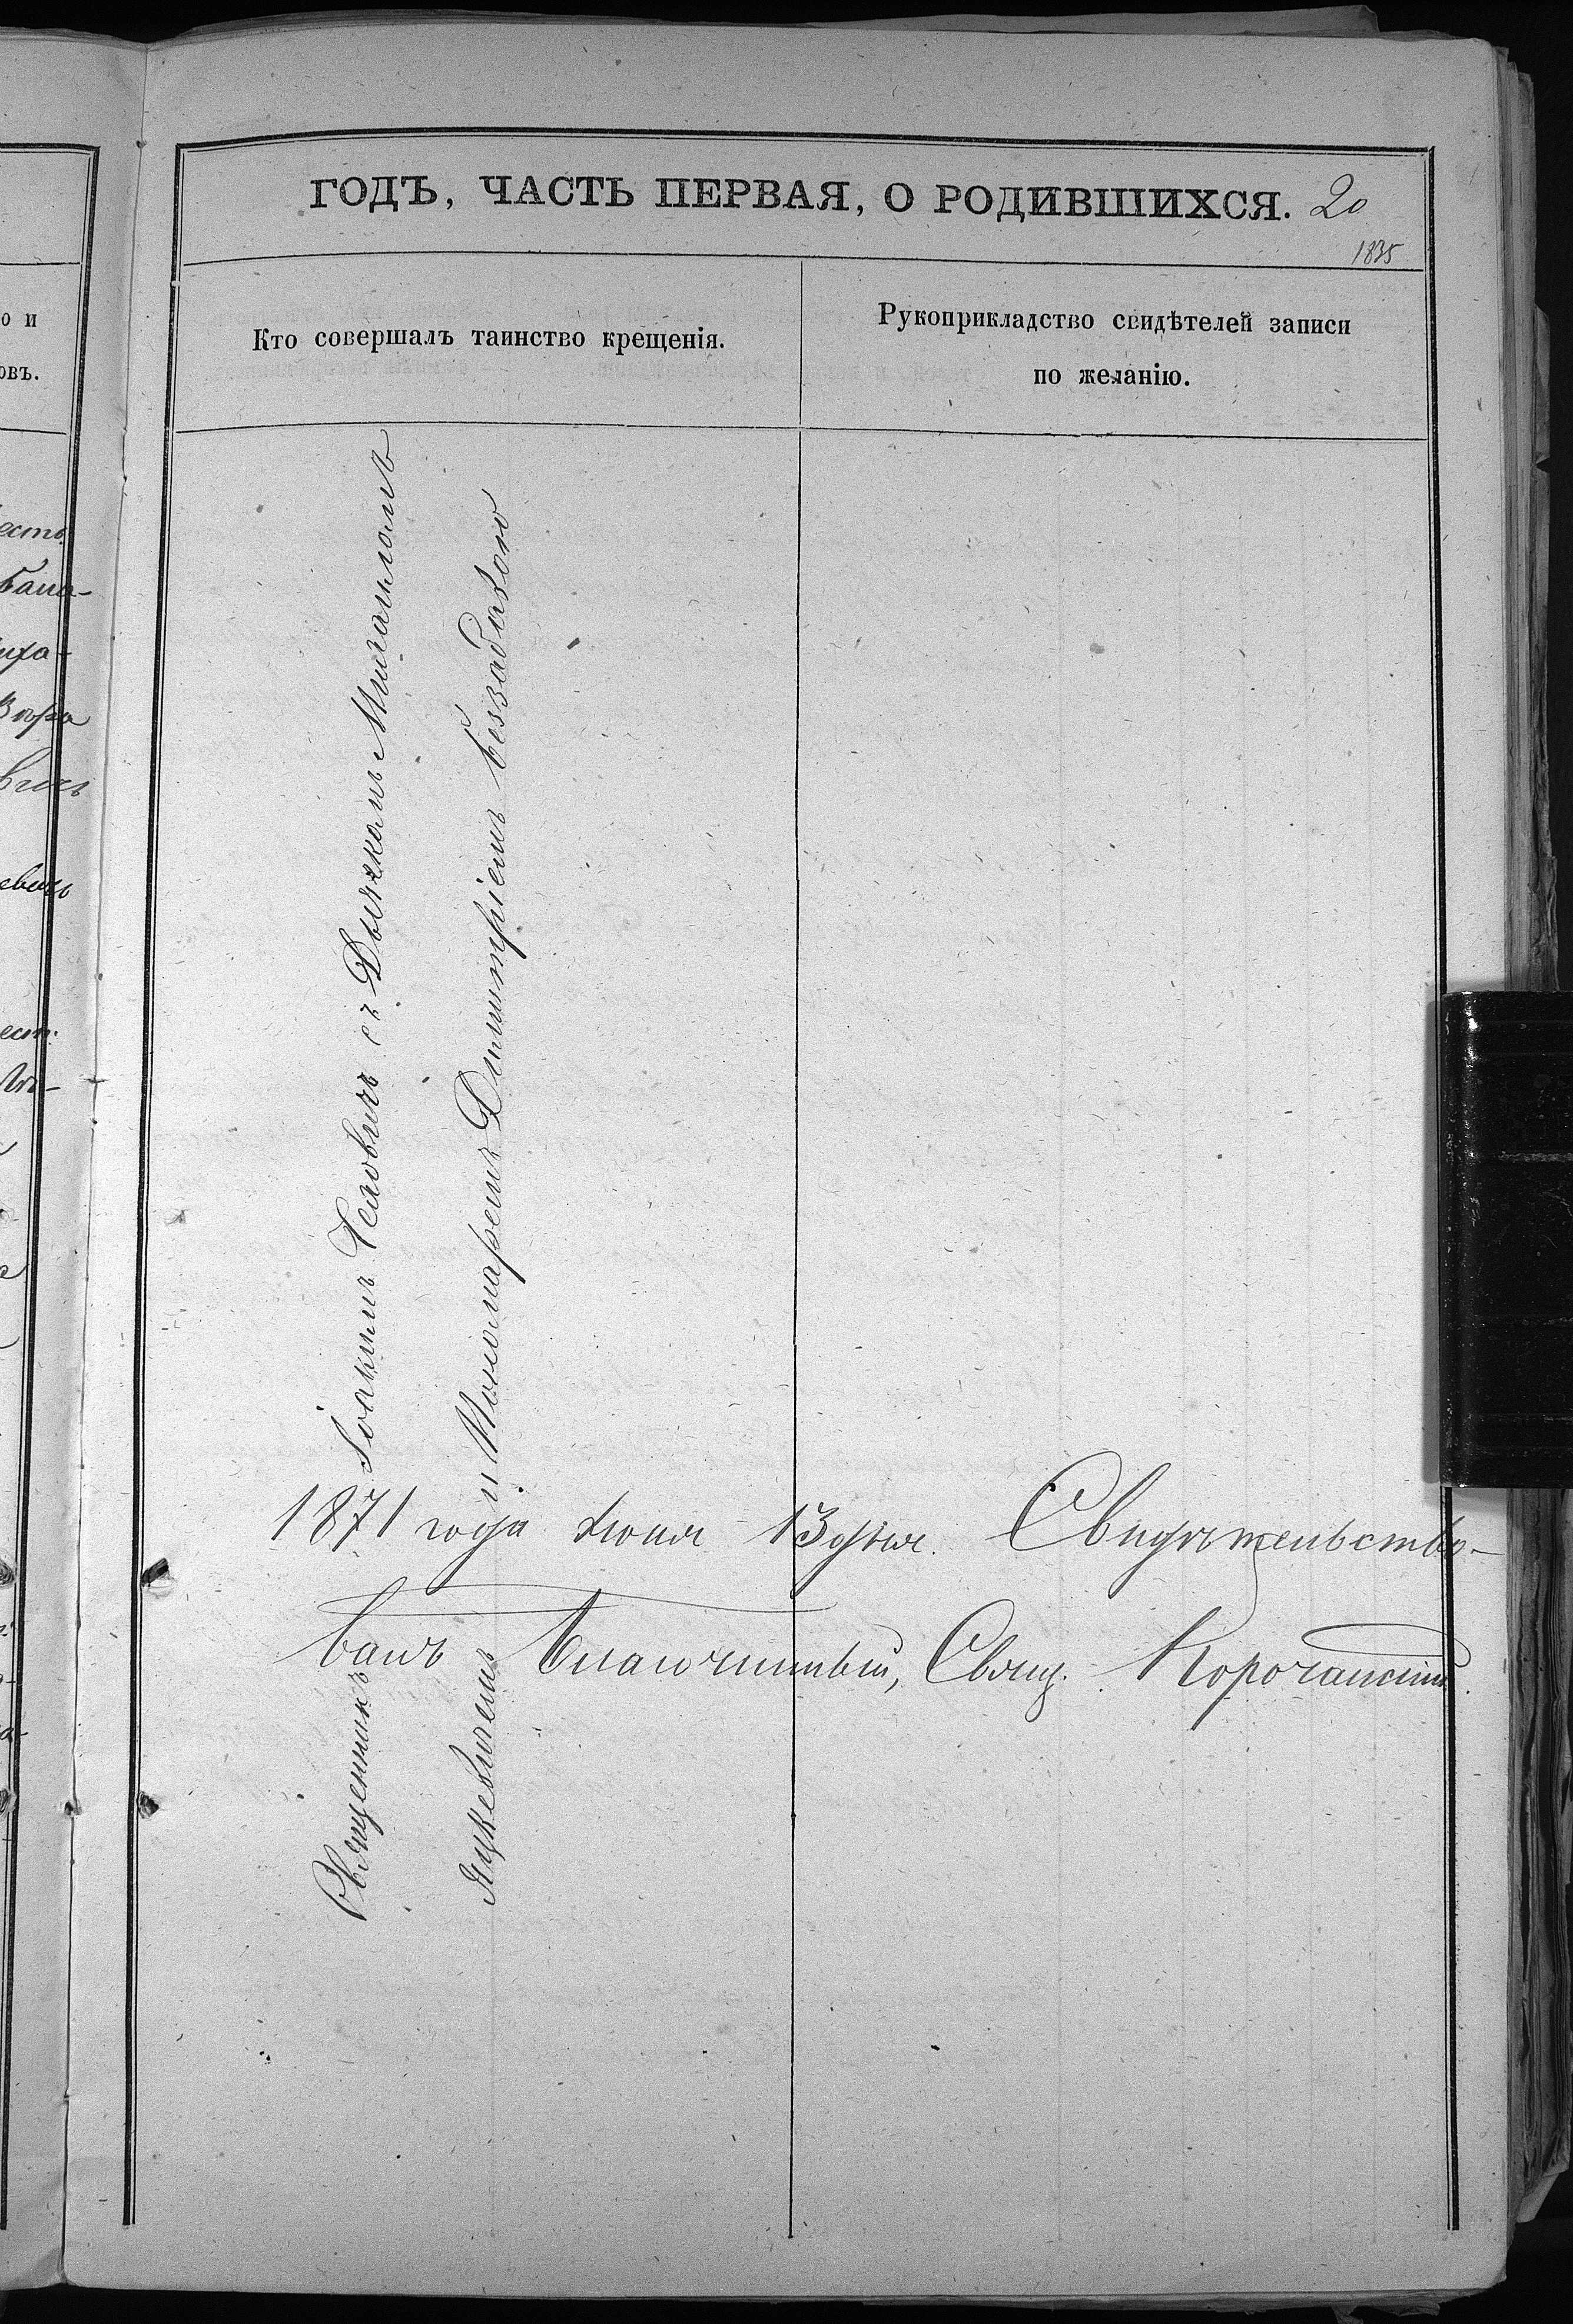 ГОДЪ, ЧАСТЬ ПЕРВАЯ, О РОДИВШИХСЯ. 20
1835
Кто совершалъ таинство крещенія.
Рукоприкладство свидѣтелей записи
по желанію.
Священникъ Іоакимъ Человичъ съ Дьячкомъ
Яцкевичемъ и Пономаремъ Димитріемъ
1871 года Іюня 13 дня. Свидѣтельство-
валъ Благочинный, Свящ. Корочанскій.
о и
овъ.